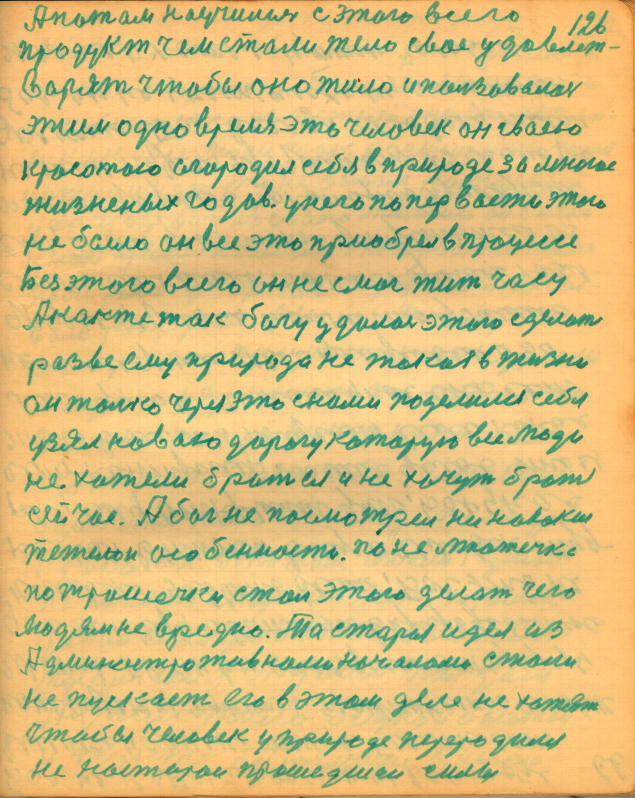 126
Апотом научился с этого всего
продукт чем стали тело свое удовлет-
варят чтобы оно жило и ползовалас
этим одно время это человек он своею
красотою огородил себя в природе за многое
жизненых годов. унего по первости этого
не было он все это приобрел в процессе
Без этого всего он не смог жит часу
А как же так богу удалос этого сделат
разве ему природа не такая в жизни
он толко через это снами поделился себя
узял новаю дорогу катарую все люди
не хотели братся и не хочут брат
сейчас. А бог не посмотрел на
тежелои особенность. по не множечка
по трошечки стал этого делат чего
людям не вредно. Та старая идея из
Административнами началами стали
не пускает его в этом деле не хотят
чтобы человек у природе переродился
не настарои прошедшеи силы